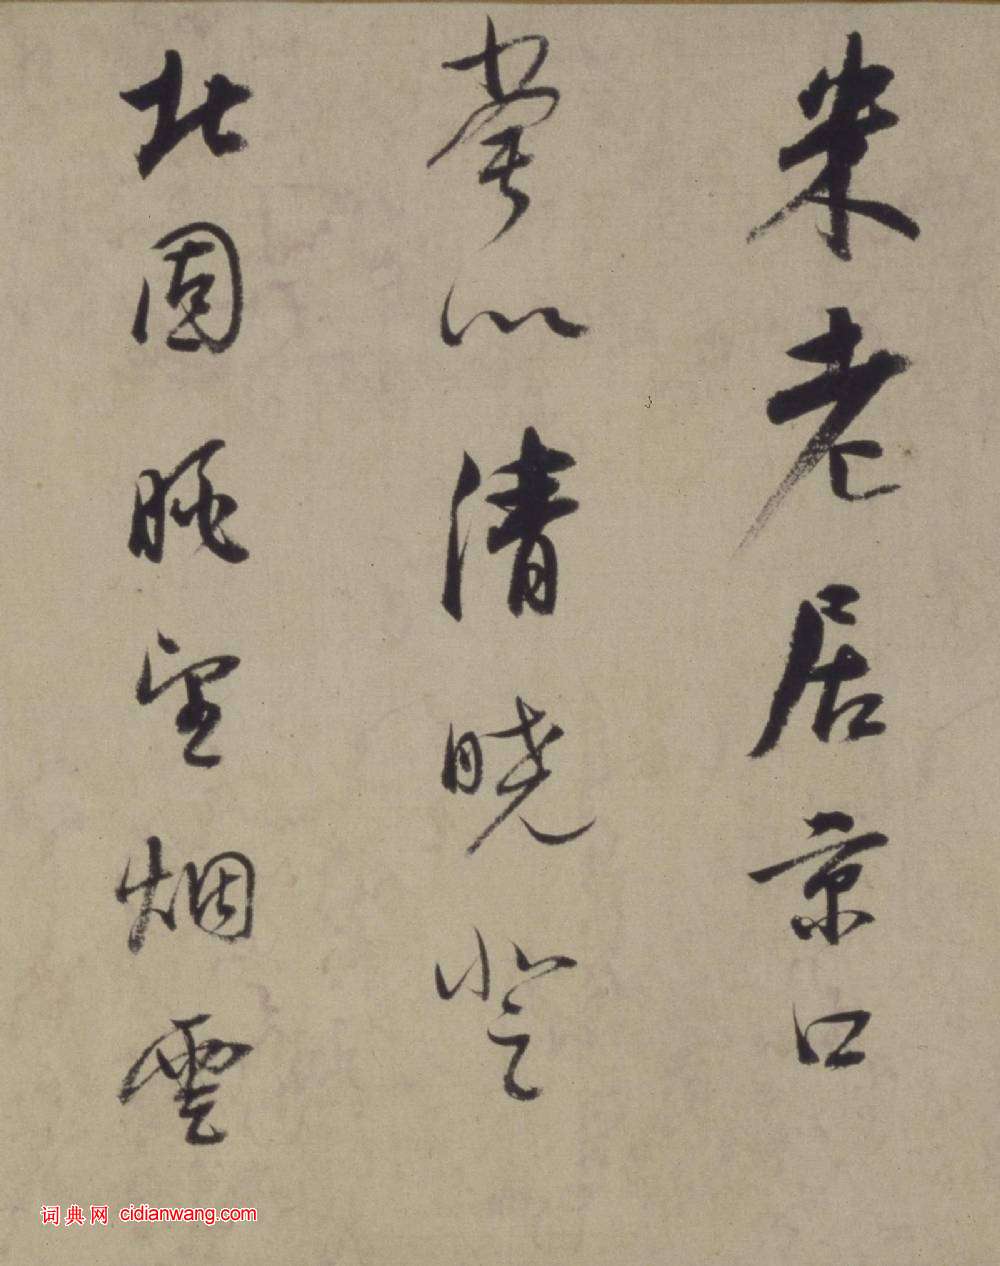 米老居京口
䓕以清曉登
北固眺望烟雲
词典网 cidianwang.com